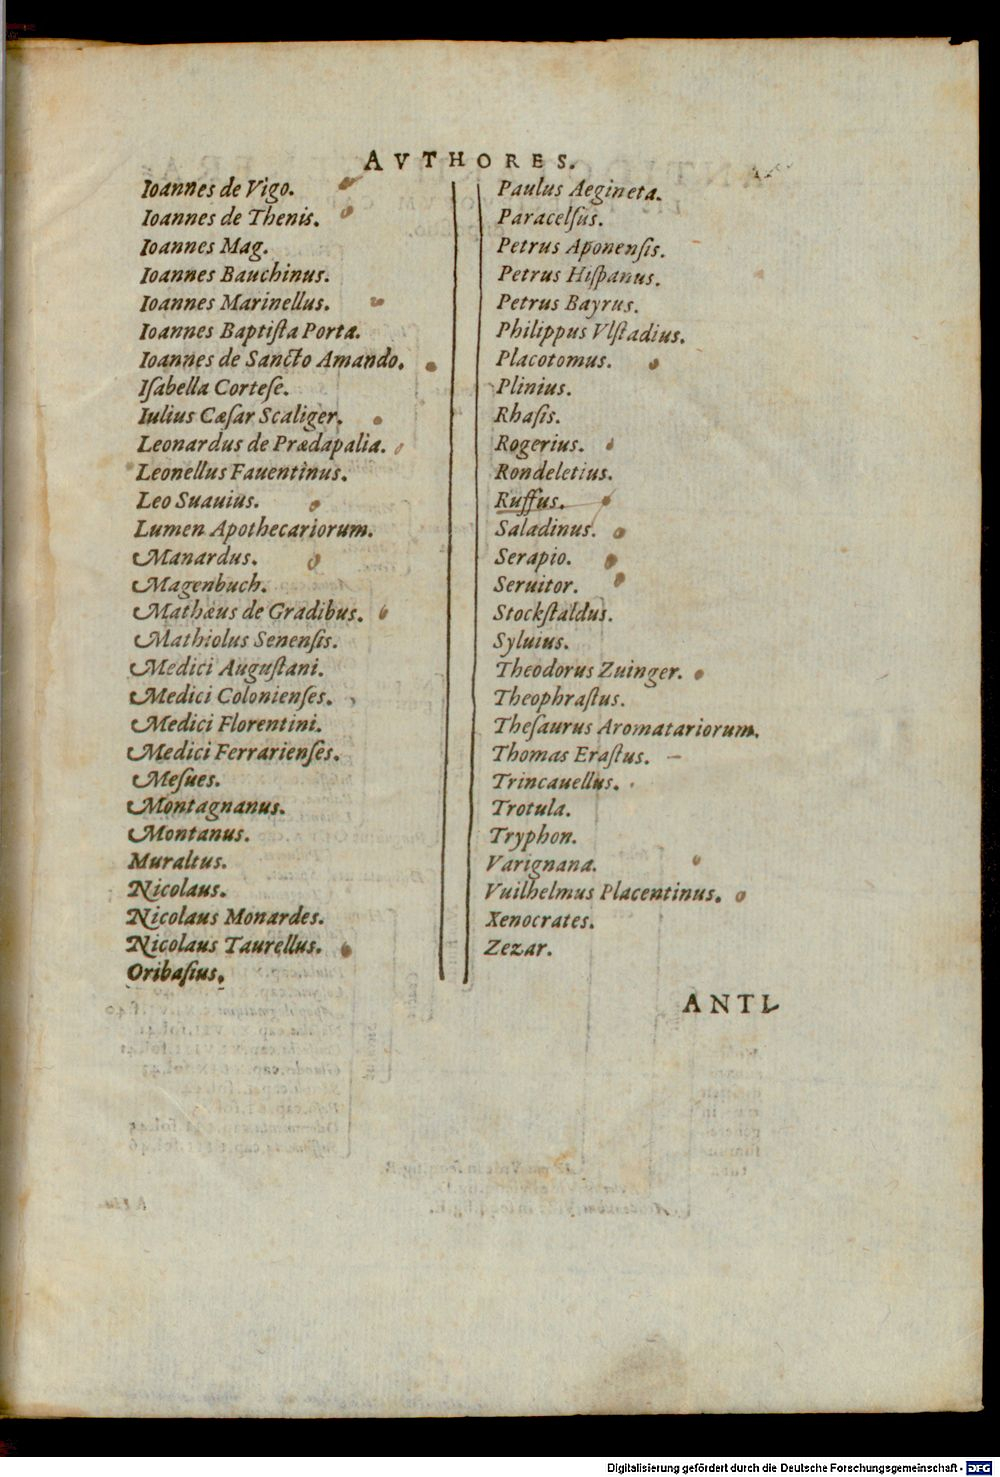 AVTHORES.
Ioannes de Vigo.
Ioannes de Thenis.
Ioannes Mag.
Ioannes Bauchinus.
Ioannes Marinellus.
Ioannes Baptiſta Porta.
Ioannes de Sancto Amando.
Iſabella Corteſe.
Iulius Cæſar Scaliger.
Leonardus de Prædapalia.
Leonellus Fauentinus.
Leo Suauius.
Lumen Apothecariorum.
Manardus.
Magenbuch.
Mathæus de Gradibus.
Mathiolus Senenſis.
Medici Auguſtani.
Medici Colonienſes.
Medici Florentini.
Medici Ferrarienſes.
Meſues.
Montagnanus.
Montanus.
Muraltus.
Nicolaus.
Nicolaus Monardes.
Nicolaus Taurellus.
Oribaſius.
Paulus Aegineta.
Paracelſus.
Petrus Aponenſis.
Petrus Hiſpanus.
Petrus Bayrus.
Philippus Vlſtadius.
Placotomus.
Plinius.
Rhaſis.
Rogerius.
Rondeletius.
Ruffus.
Saladinus.
Serapio.
Seruitor.
Stockſtaldus.
Syluius.
Theodorus Zuinger.
Theophraſtus.
Theſaurus Aromatariorum.
Thomas Eraſtus.
Trincauellus.
Trotula.
Tryphon.
Varignana.
Vuilhelmus Placentinus.
Xenocrates.
Zezar.
ANTI-
Digitalisierung gefördert durch die Deutsche Forschungsgemeinschaft - DFG